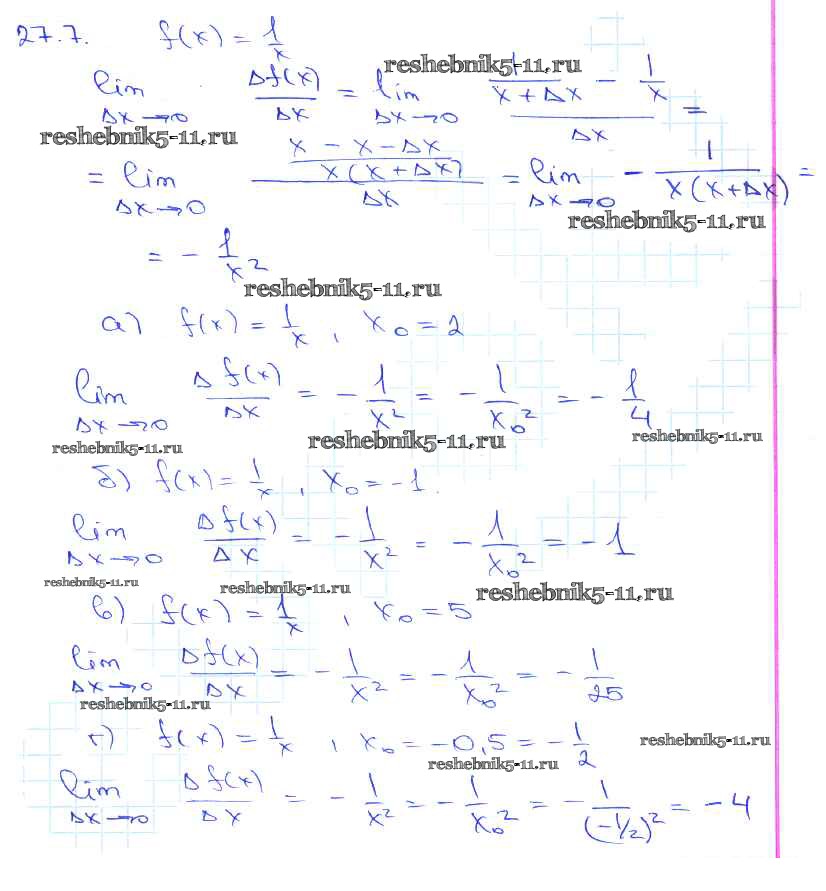 27.7. f(x) = 1/x
reshebnik5-11.ru
lim Δx→0 Δf(x)/Δx = lim Δx→0 (1/(x+Δx) − 1/x)/Δx =
reshebnik5-11.ru
= lim Δx→0 ((x − x − Δx)/(x(x+Δx)))/Δx = lim Δx→0 − 1/(x(x+Δx)) =
reshebnik5-11.ru
= − 1/x²
reshebnik5-11.ru
а) f(x) = 1/x, x₀ = 2
lim Δx→0 Δf(x)/Δx = − 1/x² = − 1/x₀² = − 1/4
reshebnik5-11.ru reshebnik5-11.ru reshebnik5-11.ru
б) f(x) = 1/x, x₀ = −1.
lim Δx→0 Δf(x)/Δx = − 1/x² = − 1/x₀² = −1
reshebnik5-11.ru reshebnik5-11.ru reshebnik5-11.ru
в) f(x) = 1/x, x₀ = 5
lim Δx→0 Δf(x)/Δx = − 1/x² = − 1/x₀² = − 1/25
reshebnik5-11.ru
г) f(x) = 1/x, x₀ = −0,5 = − 1/2
reshebnik5-11.ru
reshebnik5-11.ru
lim Δx→0 Δf(x)/Δx = − 1/x² = − 1/x₀² = − 1/(−1/2)² = −4